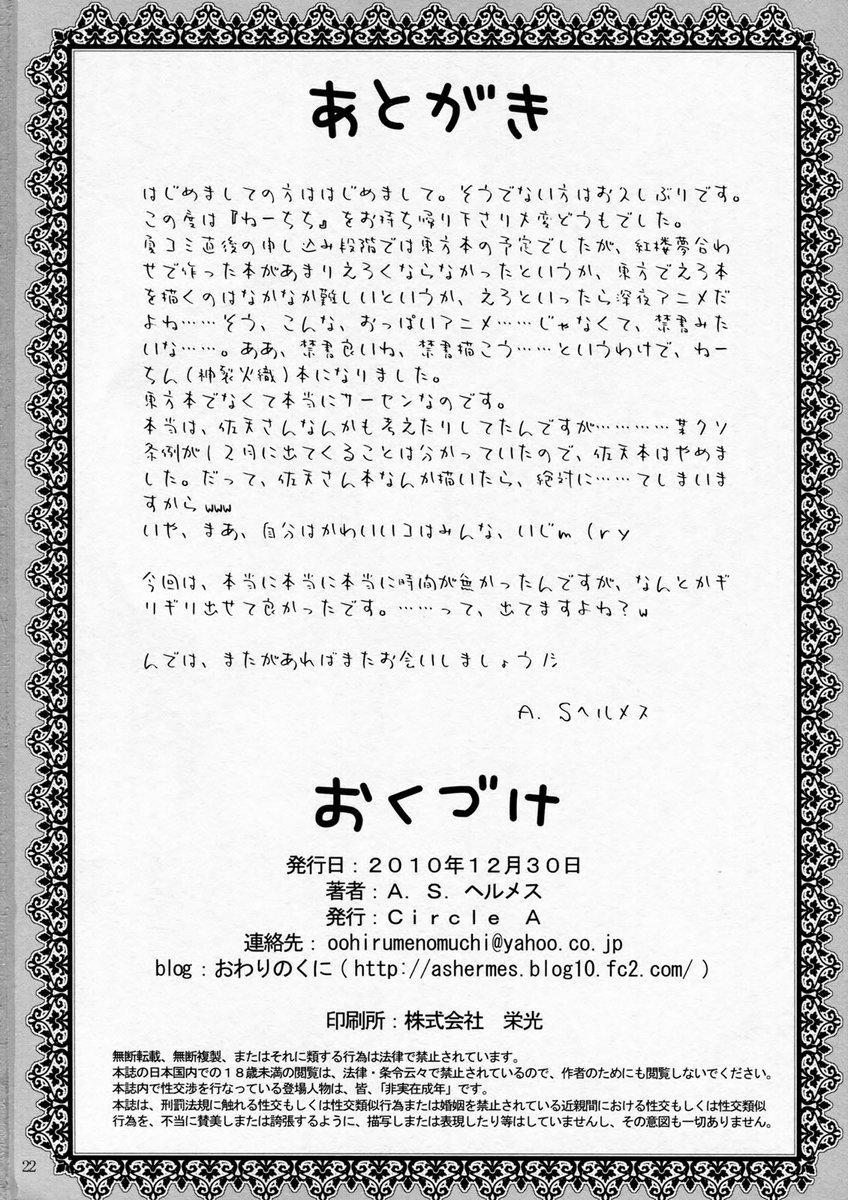 あとがき
はじめましての方ははじめまして。そうでない方はお久しぶりです。
この度は『ねーちち』をお持ち帰り下さり大変どうもでした。
夏コミ直後の申し込み段階では東方本の予定でしたが、紅楼夢合わ
せで作った本があまりえろくならなかったというか、東方でえろ本
を描くのはなかなか難しいというか、えろといったら深夜アニメだ
よね……そう、こんな、おっぱいアニメ……じゃなくて、禁書みた
いな……。ああ、禁書良いね、禁書描こう……というわけで、ねー
ちん(神裂火織)本になりました。
東方本でなくて本当にサーセンなのです。
本当は、佐天さんなんかも考えたりしてたんですが…………某クソ
条例が12月に出てくることは分かっていたので、佐天本はやめま
した。だって、佐天さん本なんか描いたら、絶対に……てしまいま
すからwww
いや、まあ、自分はかわいいコはみんな、いじm(ry
今回は、本当に本当に本当に時間が無かったんですが、なんとかギ
リギリ出せて良かったです。……って、出てますよね?w
んでは、またがあればまたお会いしましょうﾉｼ
A. Sヘルメス
おくづけ
発行日：２０１０年１２月３０日
著者：Ａ．Ｓ．ヘルメス
発行：Ｃｉｒｃｌｅ　Ａ
連絡先： oohirumenomuchi@yahoo.co.jp
blog：おわりのくに（http://ashermes.blog10.fc2.com/）
印刷所：株式会社　栄光
無断転載、無断複製、またはそれに類する行為は法律で禁止されています。
本誌の日本国内での１８歳未満の閲覧は、法律・条令云々で禁止されているので、作者のためにも閲覧しないでください。
本誌内で性交渉を行なっている登場人物は、皆、「非実在成年」です。
本誌は、刑罰法規に触れる性交もしくは性交類似行為または婚姻を禁止されている近親間における性交もしくは性交類似
行為を、不当に賛美しまたは誇張するように、描写しまたは表現したり等はしていませんし、その意図も一切ありません。
22